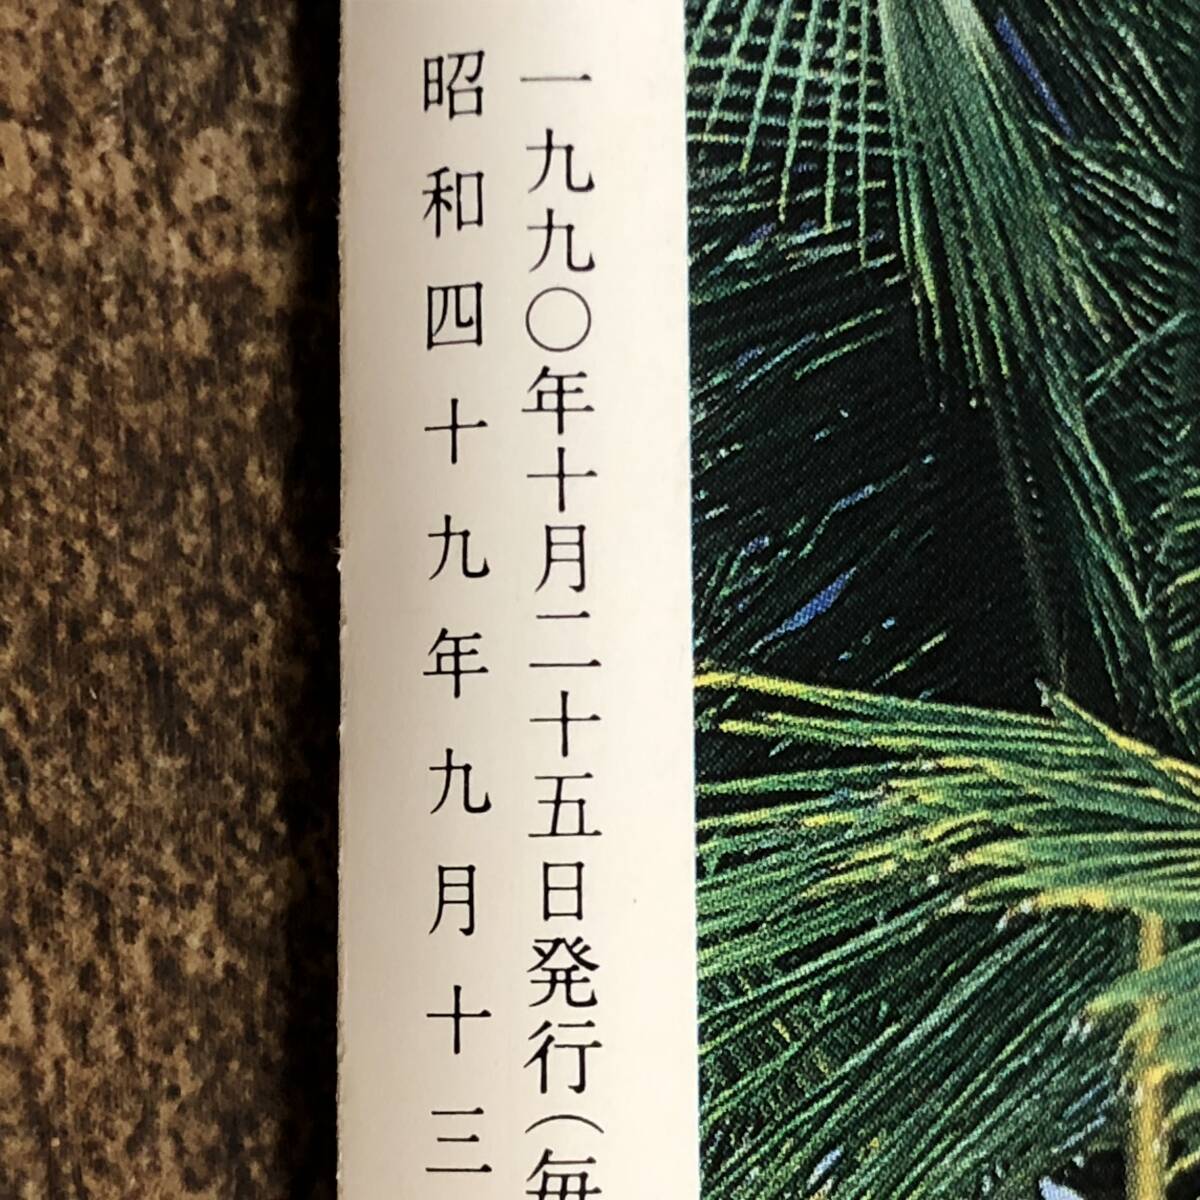 一九九〇年十月二十五日発行(毎
昭和四十九年九月十三